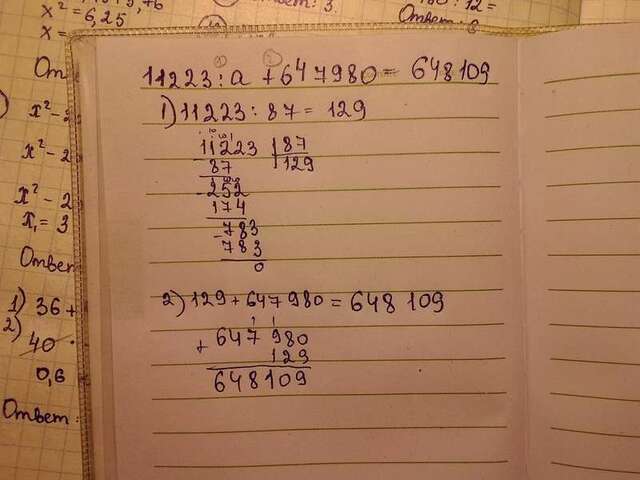 x² = 6,25
x =
От
x² - 2
x² - 2
x² - 2
x₁ = 3
Ответ
1) 36 +
2)
40
0,6
Ответ:
Ответ: 3.
Ответ: 6
: 12 =
11223 : a + 647980 = 648109
1) 11223 : 87 = 129
11223 | 87
87 129
- 252
174
- 783
783
0
2) 129 + 647980 = 648109
+ 647980
129
648109